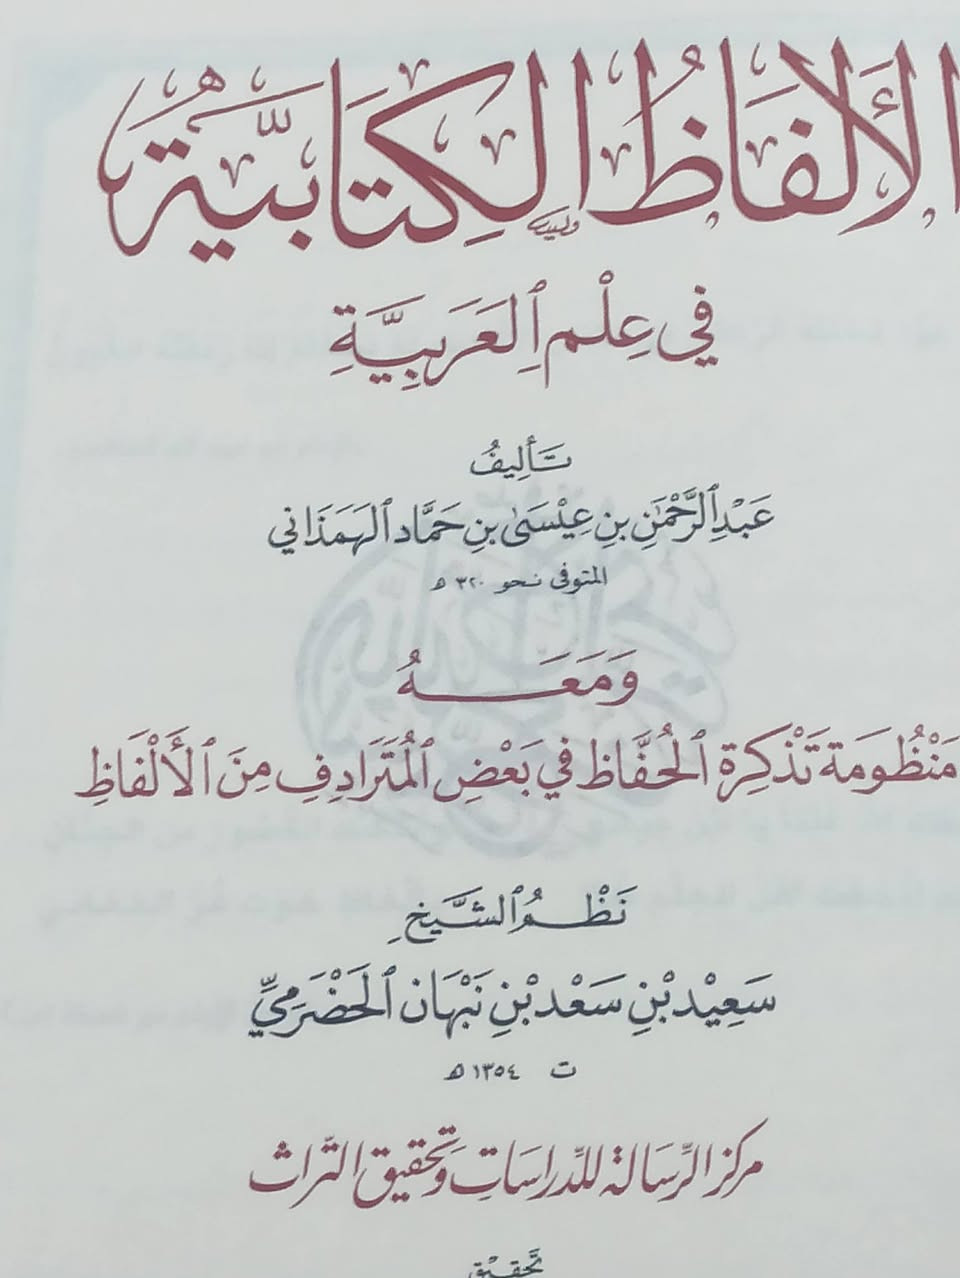 الأَلْفَاظُ الكِتَابِيَّةُ
فِي عِلْمِ العَرَبِيَّةِ
تَأْلِيفُ
عَبْدِ الرَّحْمَنِ بنِ عِيْسَىٰ بنِ حَمَّاد الهَمَذَاني
المتوفى نحو ٣٢٠ هـ
وَمَعَهُ
مَنْظُومَة تَذْكِرة الحُفَّاظ في بَعْضِ المُتَرَادِفِ مِنَ الأَلْفَاظِ
نَظْمُ الشَّيْخِ
سَعِيْد بْنِ سَعْد بْنِ نَبْهَان الحَضْرَمِيِّ
ت ١٣٥٤ هـ
مركز الرِّسَالة للدِّراسَاتِ وَتحقيق التّراث
تحقيق